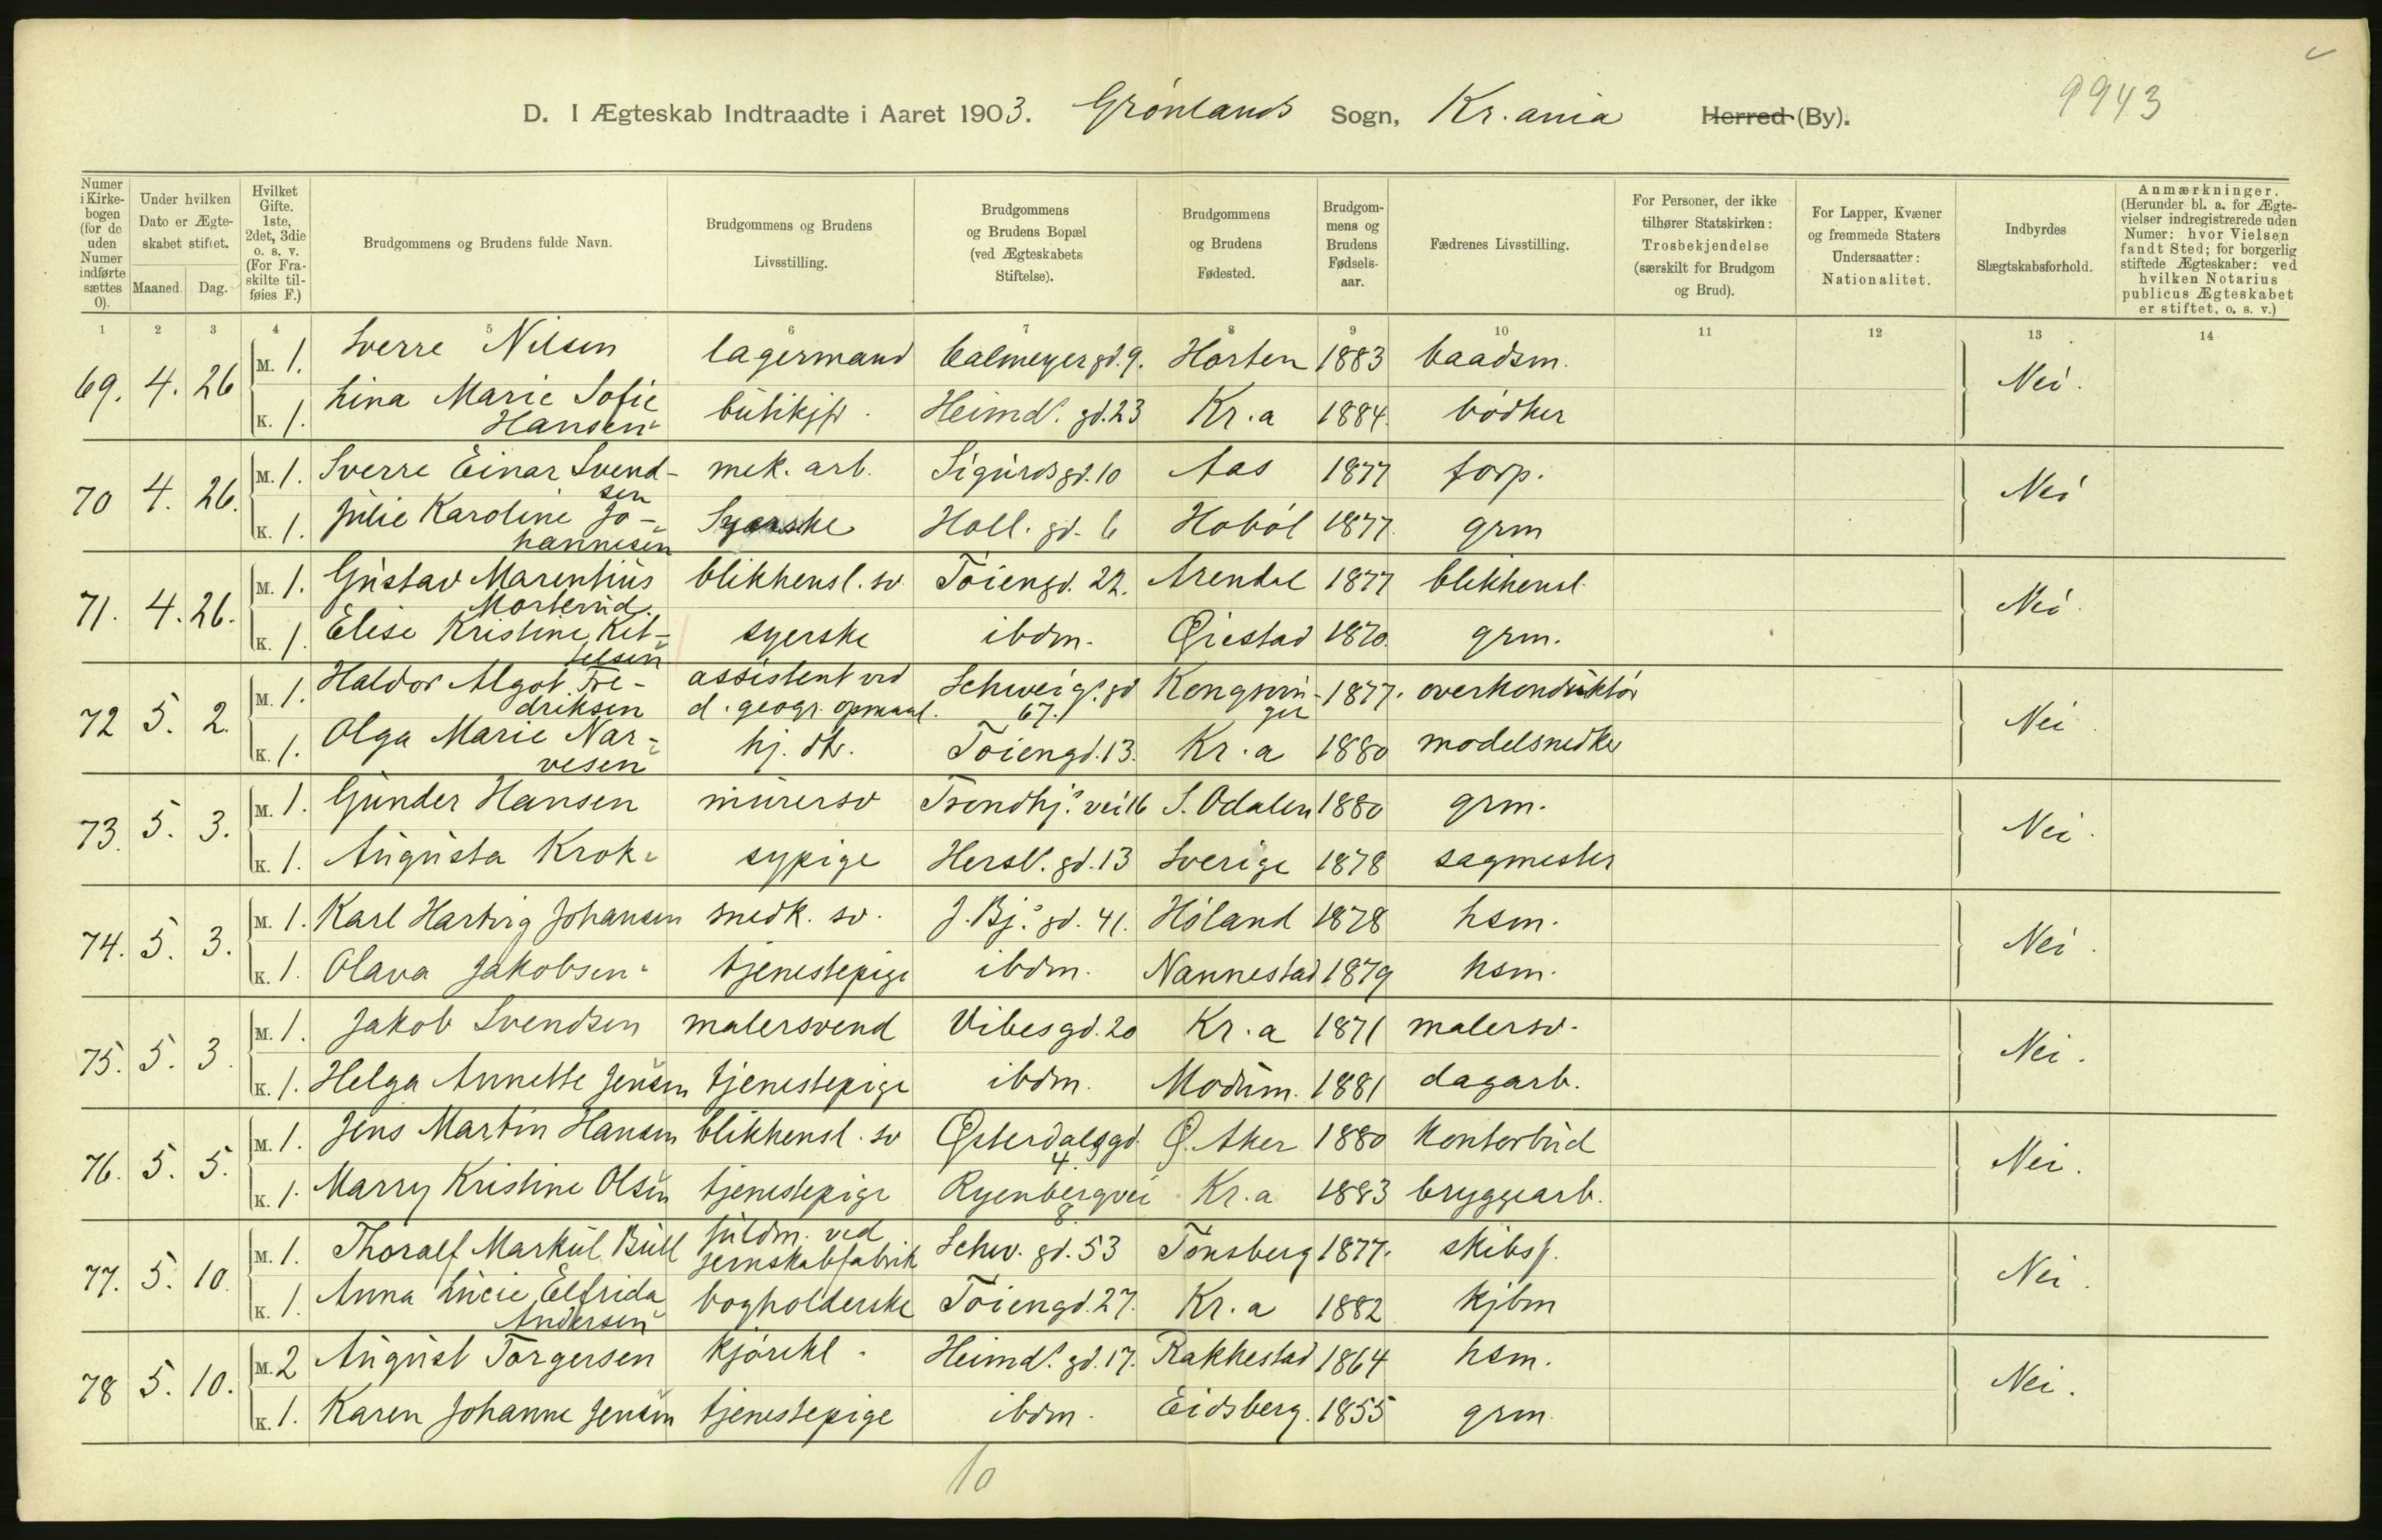 D. I Ægteskab Indtraadte i Aaret 1903. Grønlands Sogn, Kr.ania Herred (By). 9943
Numer i Kirkebogen (for de uden Numer indførte sættes 0).
Under hvilken Dato er Ægteskabet stiftet.
Maaned. Dag.
Hvilket Gifte. 1ste, 2det, 3die o. s. v. (For Fraskilte tilføies F.)
Brudgommens og Brudens fulde Navn.
Brudgommens og Brudens Livsstilling.
Brudgommens og Brudens Bopæl (ved Ægteskabets Stiftelse).
Brudgommens og Brudens Fødested.
Brudgommens og Brudens Fødselsaar.
Fædrenes Livsstilling.
For Personer, der ikke tilhører Statskirken: Trosbekjendelse (særskilt for Brudgom og Brud).
For Lapper, Kvæner og fremmede Staters Undersaatter: Nationalitet.
Indbyrdes Slægtskabsforhold.
Anmærkninger. (Herunder bl. a. for Ægtevielser indregistrerede uden Numer: hvor Vielsen fandt Sted; for borgerlig stiftede Ægteskaber: ved hvilken Notarius publicus Ægteskabet er stiftet, o. s. v.)
1 2 3 4 5 6 7 8 9 10 11 12 13 14
69. 4. 26 M. 1. Sverre Nilsen lagermand Calmeyergd. 9. Horten 1883 baadsm. Nei.
K. 1. Lina Marie Sofie Hansen butikjfr. Heimd. gd. 23 Kr.a 1884. bødker
70 4. 26. M. 1. Sverre Einar Svendsen mek. arb. Sigurdsgd. 10 Aas 1877 forp. Nei
K. 1. Julie Karoline Johannesen Syerske Holl. gd. 6 Hobøl 1877. grm
71. 4. 26. M. 1. Gustav Marentius Morterud. blikkensl. sv. Tøiengd. 22. Arendal 1877 blikkensl. Nei.
K. 1. Elise Kristine Ketjelsen syerske ibdm. Øiestad 1870. grm.
72 5. 2. M. 1. Haldor Algot Fredriksen assistent ved d. geogr. opmaal. Schweig. gd 67. Kongsvinger 1877. overkonduktør Nei.
K. 1. Olga Marie Narvesen hj. dtr. Tøiengd. 13. Kr.a 1880 modelsnedker
73. 5. 3. M. 1. Gunder Hansen murersv Trondhj.s vei 16 S. Odalen 1880 grm. Nei.
K. 1. Augusta Krok sypige Hersl. gd. 13 Sverige 1878 sagmester
74. 5. 3. M. 1. Karl Hartvig Johansen snedk. sv. J. Bj.s gd. 41. Høland 1878 hsm. Nei.
K. 1. Olava Jakobsen tjenestepige ibdm. Nannestad 1879 hsm.
75. 5. 3. M. 1. Jakob Svendsen malersvend Vibesgd. 20 Kr.a 1871 malersv. Nei.
K. 1. Helga Annette Jensen tjenestepige ibdm. Modum. 1881 dagarb.
76. 5. 5. M. 1. Jens Martin Hansen blikkensl. sv Østerdalsgd. 4. Ø. Aker 1880 kontorbud Nei.
K. 1. Marry Kristine Olsen tjenestepige Ryenbergvei 8 Kr.a 1883 bryggearb.
77. 5. 10. M. 1. Thoralf Markul Bull fuldm. ved jernskabfabrik Schw. gd. 53 Tønsberg 1877. skibsf. Nei.
K. 1. Anna Lucie Elfrida Andersen bogholderske Tøiengd. 27. Kr.a 1882 kjbm
78 5. 10. M. 2 August Torgersen kjørekl. Heimd. gd. 17. Rakkestad 1864 hsm. Nei.
K. 1. Karen Johanne Jensen tjenestepige ibdm. Eidsberg. 1855 grm.
10